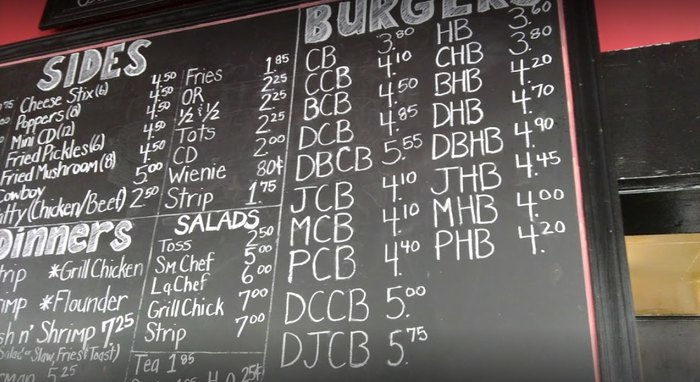 SIDES
Cheese Stix(6) 4.50
Poppers(8) 4.50
Mini CD(12) 4.50
Fried Pickles(6) 4.50
Fried Mushroom(8) 5.00
Cowboy
Patty(Chicken/Beef) 2.50
Fries 1.85
OR 2.25
½ & ½ 2.25
Tots 2.25
CD 2.00
Wienie 80¢
Strip 1.75
Dinners
*Grill Chicken
*Flounder
n' Shrimp 7.25
Slaw, Fries & Toast)
5.25
SALADS
Toss 2.50
Sm Chef 5.00
La Chef 6.00
Grill Chick 7.00
Strip 7.00
Tea 1.85
25¢
BURGERS
CB 3.80
CCB 4.10
BCB 4.50
DCB 4.85
DBCB 5.55
JCB 4.10
MCB 4.10
PCB 4.40
DCCB 5.00
DJCB 5.75
HB 3.60
CHB 3.80
BHB 4.20
DHB 4.70
DBHB 4.90
JHB 4.45
MHB 4.00
PHB 4.20